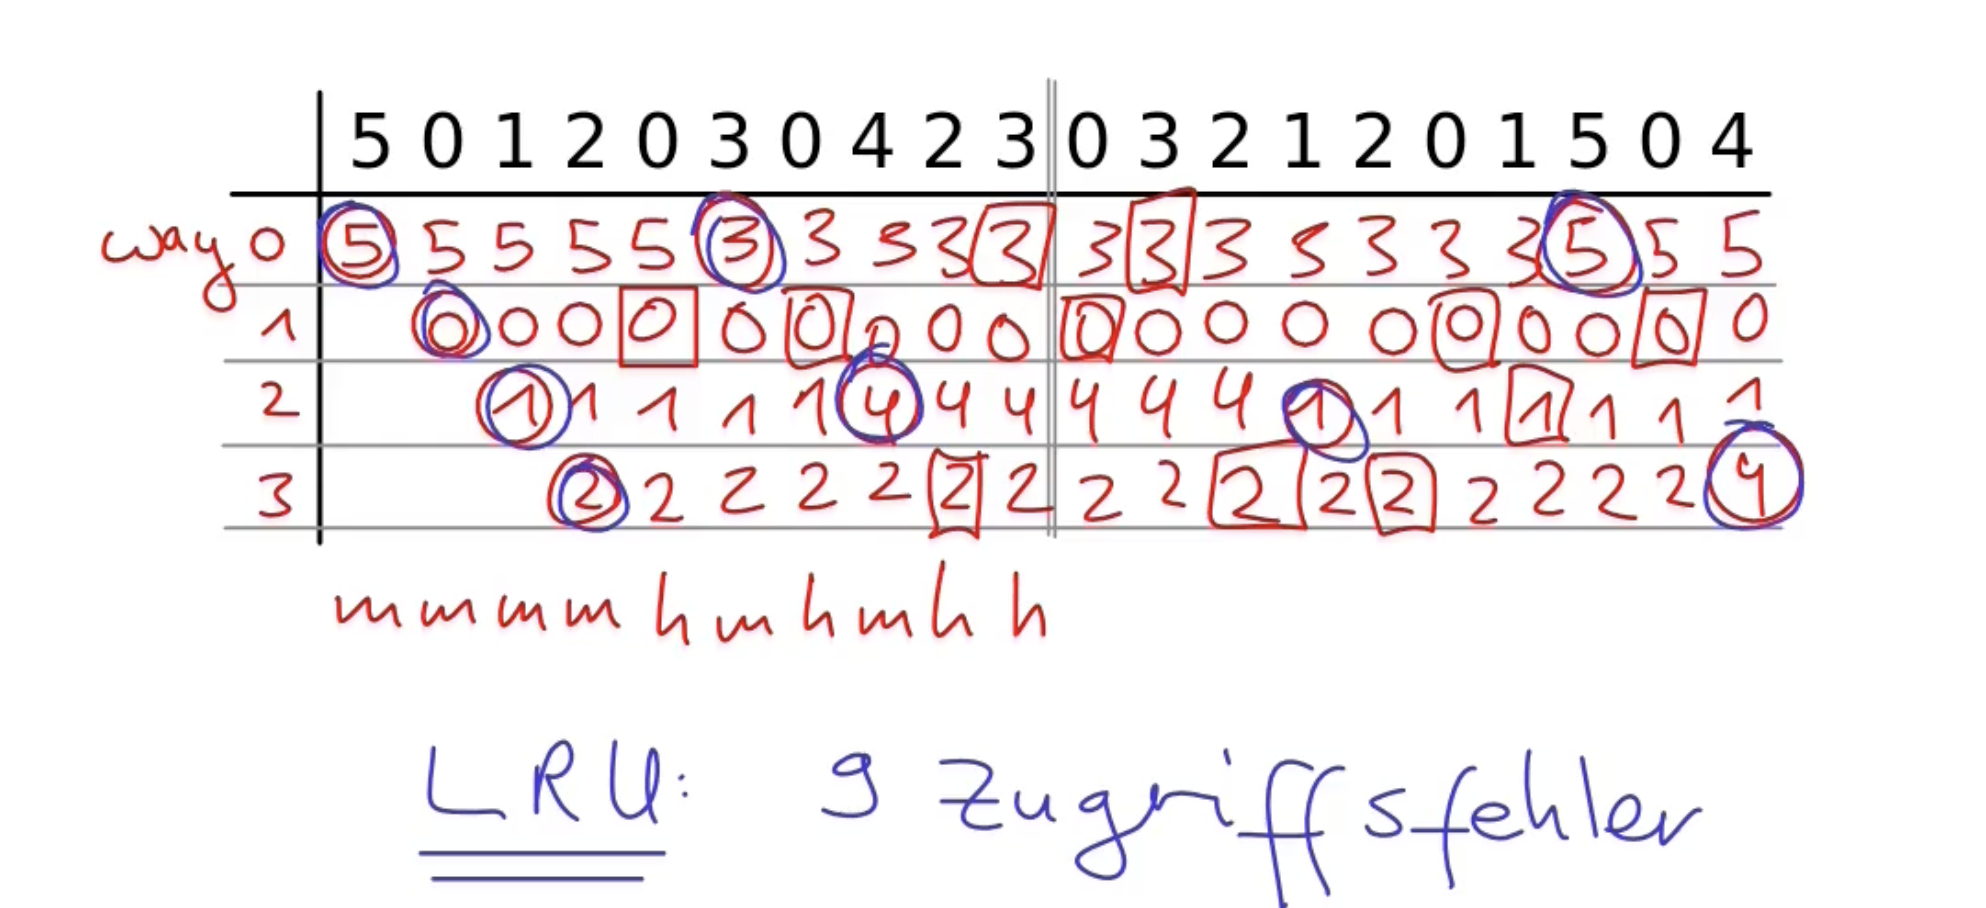 5 0 1 2 0 3 0 4 2 3 0 3 2 1 2 0 1 5 0 4
way 0 5 5 5 5 5 3 3 3 3 3 3 3 3 3 3 3 3 5 5 5
1 0 0 0 0 0 0 0 0 0 0 0 0 0 0 0 0 0 0 0
2 1 1 1 1 1 4 4 4 4 4 4 1 1 1 1 1 1 1
3 2 2 2 2 2 2 2 2 2 2 2 2 2 2 2 2 4
m m m m h m h m h h
LRU: 9 Zugriffsfehler